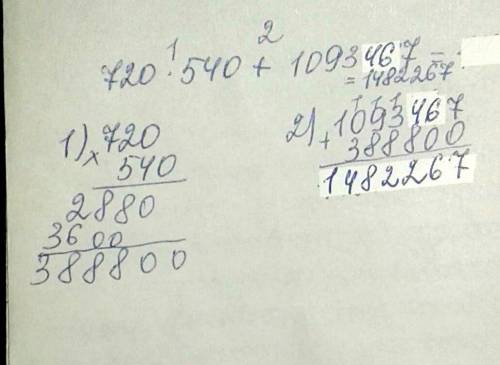 1 2
720 · 540 + 1093467 =
= 1482267
1) × 720
540
2880
3600
388800
2) + 1093467
388800
1482267